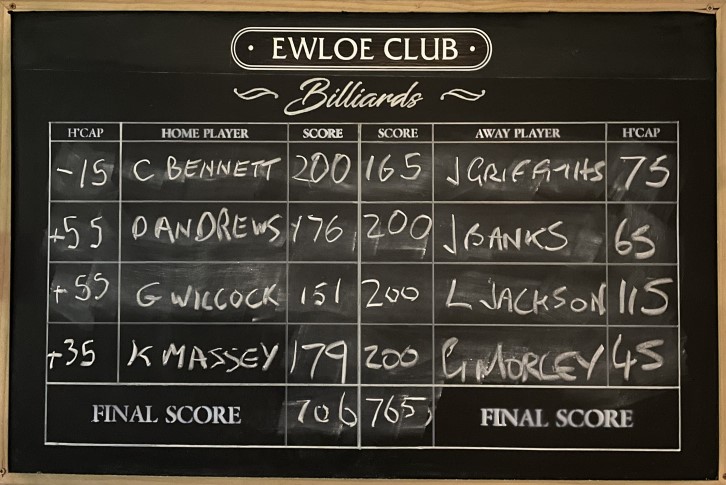 EWLOE CLUB
Billiards
H'CAP HOME PLAYER SCORE SCORE AWAY PLAYER H'CAP
-15 C BENNETT 200 165 J GRIFFITHS 75
+55 D ANDREWS 176 200 J BANKS 65
+55 G WILCOCK 151 200 L JACKSON 115
+35 K MASSEY 179 200 G MORLEY 45
FINAL SCORE 706 765 FINAL SCORE